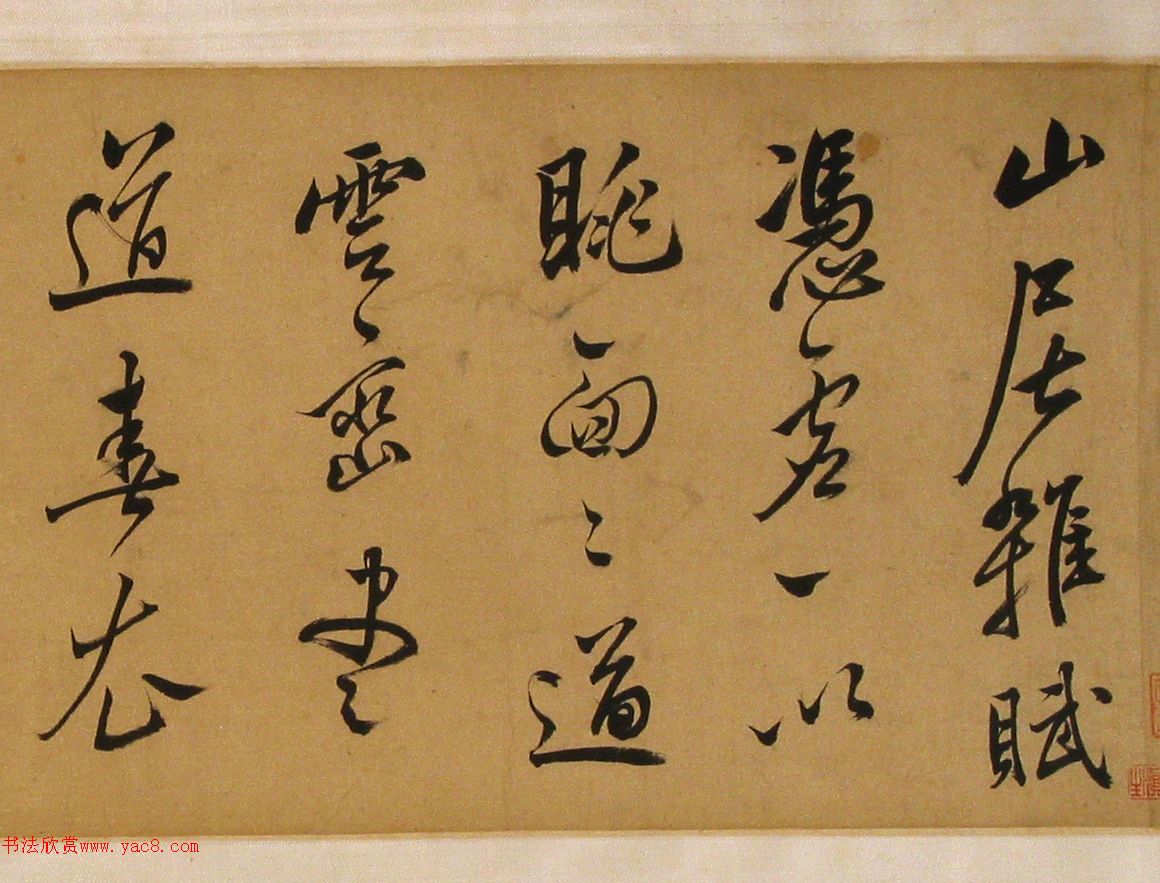 山居雜賦
憑虛一以
眺面面道
雲巒盡
道春
书法欣赏www.yac8.com